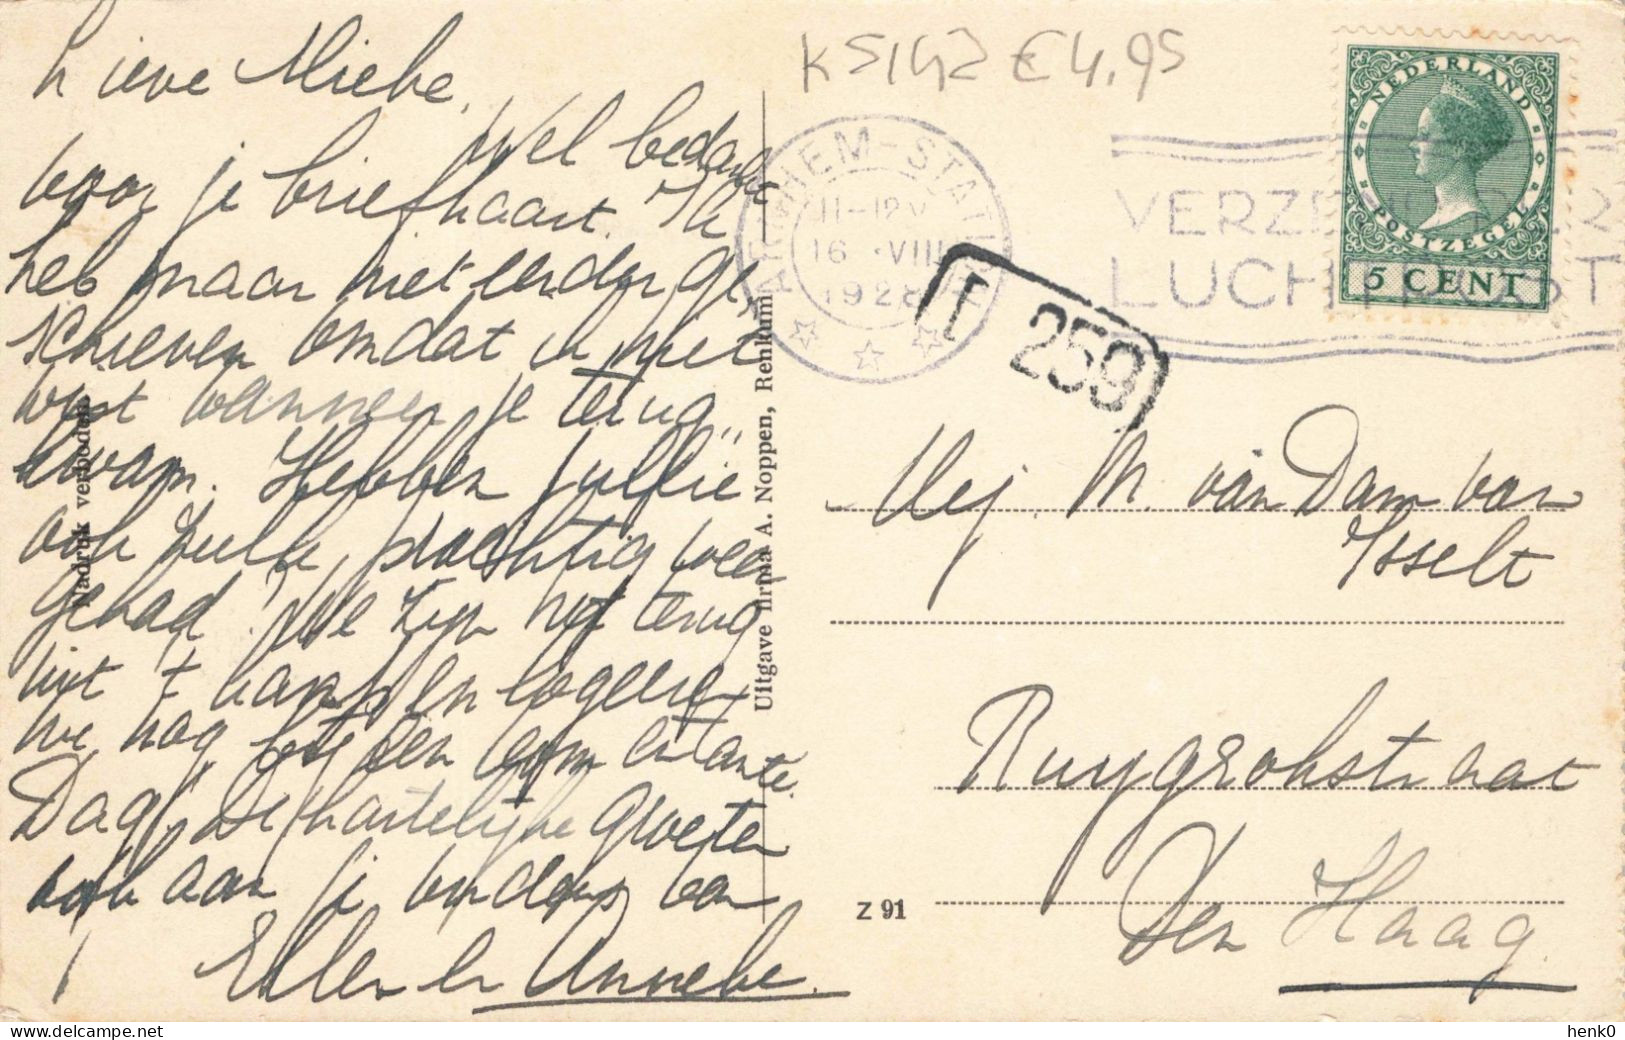 Lieve Miebe,
Wel bedankt
voor je briefkaart. Ik
heb maar niet eerder ge,,
schreven omdat ik niet
wist wanneer je terug,,
kwam. Hebben jullie
ook zulk prachtig weer
gehad? We zijn net terug
uit en logeeren
we nog bij een oom en tante.
Dag, de hartelijke groeten
ook aan je ouders van
Ellen en Annebe.
Nadruk verboden
Uitgave firma A. Noppen, Renkum
Z 91
K5142 € 4,95
ARNHEM-STATION
11-12V
16 VIII
1928
VERZENDT PER
LUCHTPOST
NEDERLAND
POSTZEGEL
5 CENT
I 259
Mej. M. van Dam van
Isselt
Ruygrokstraat
Den Haag.
henk0